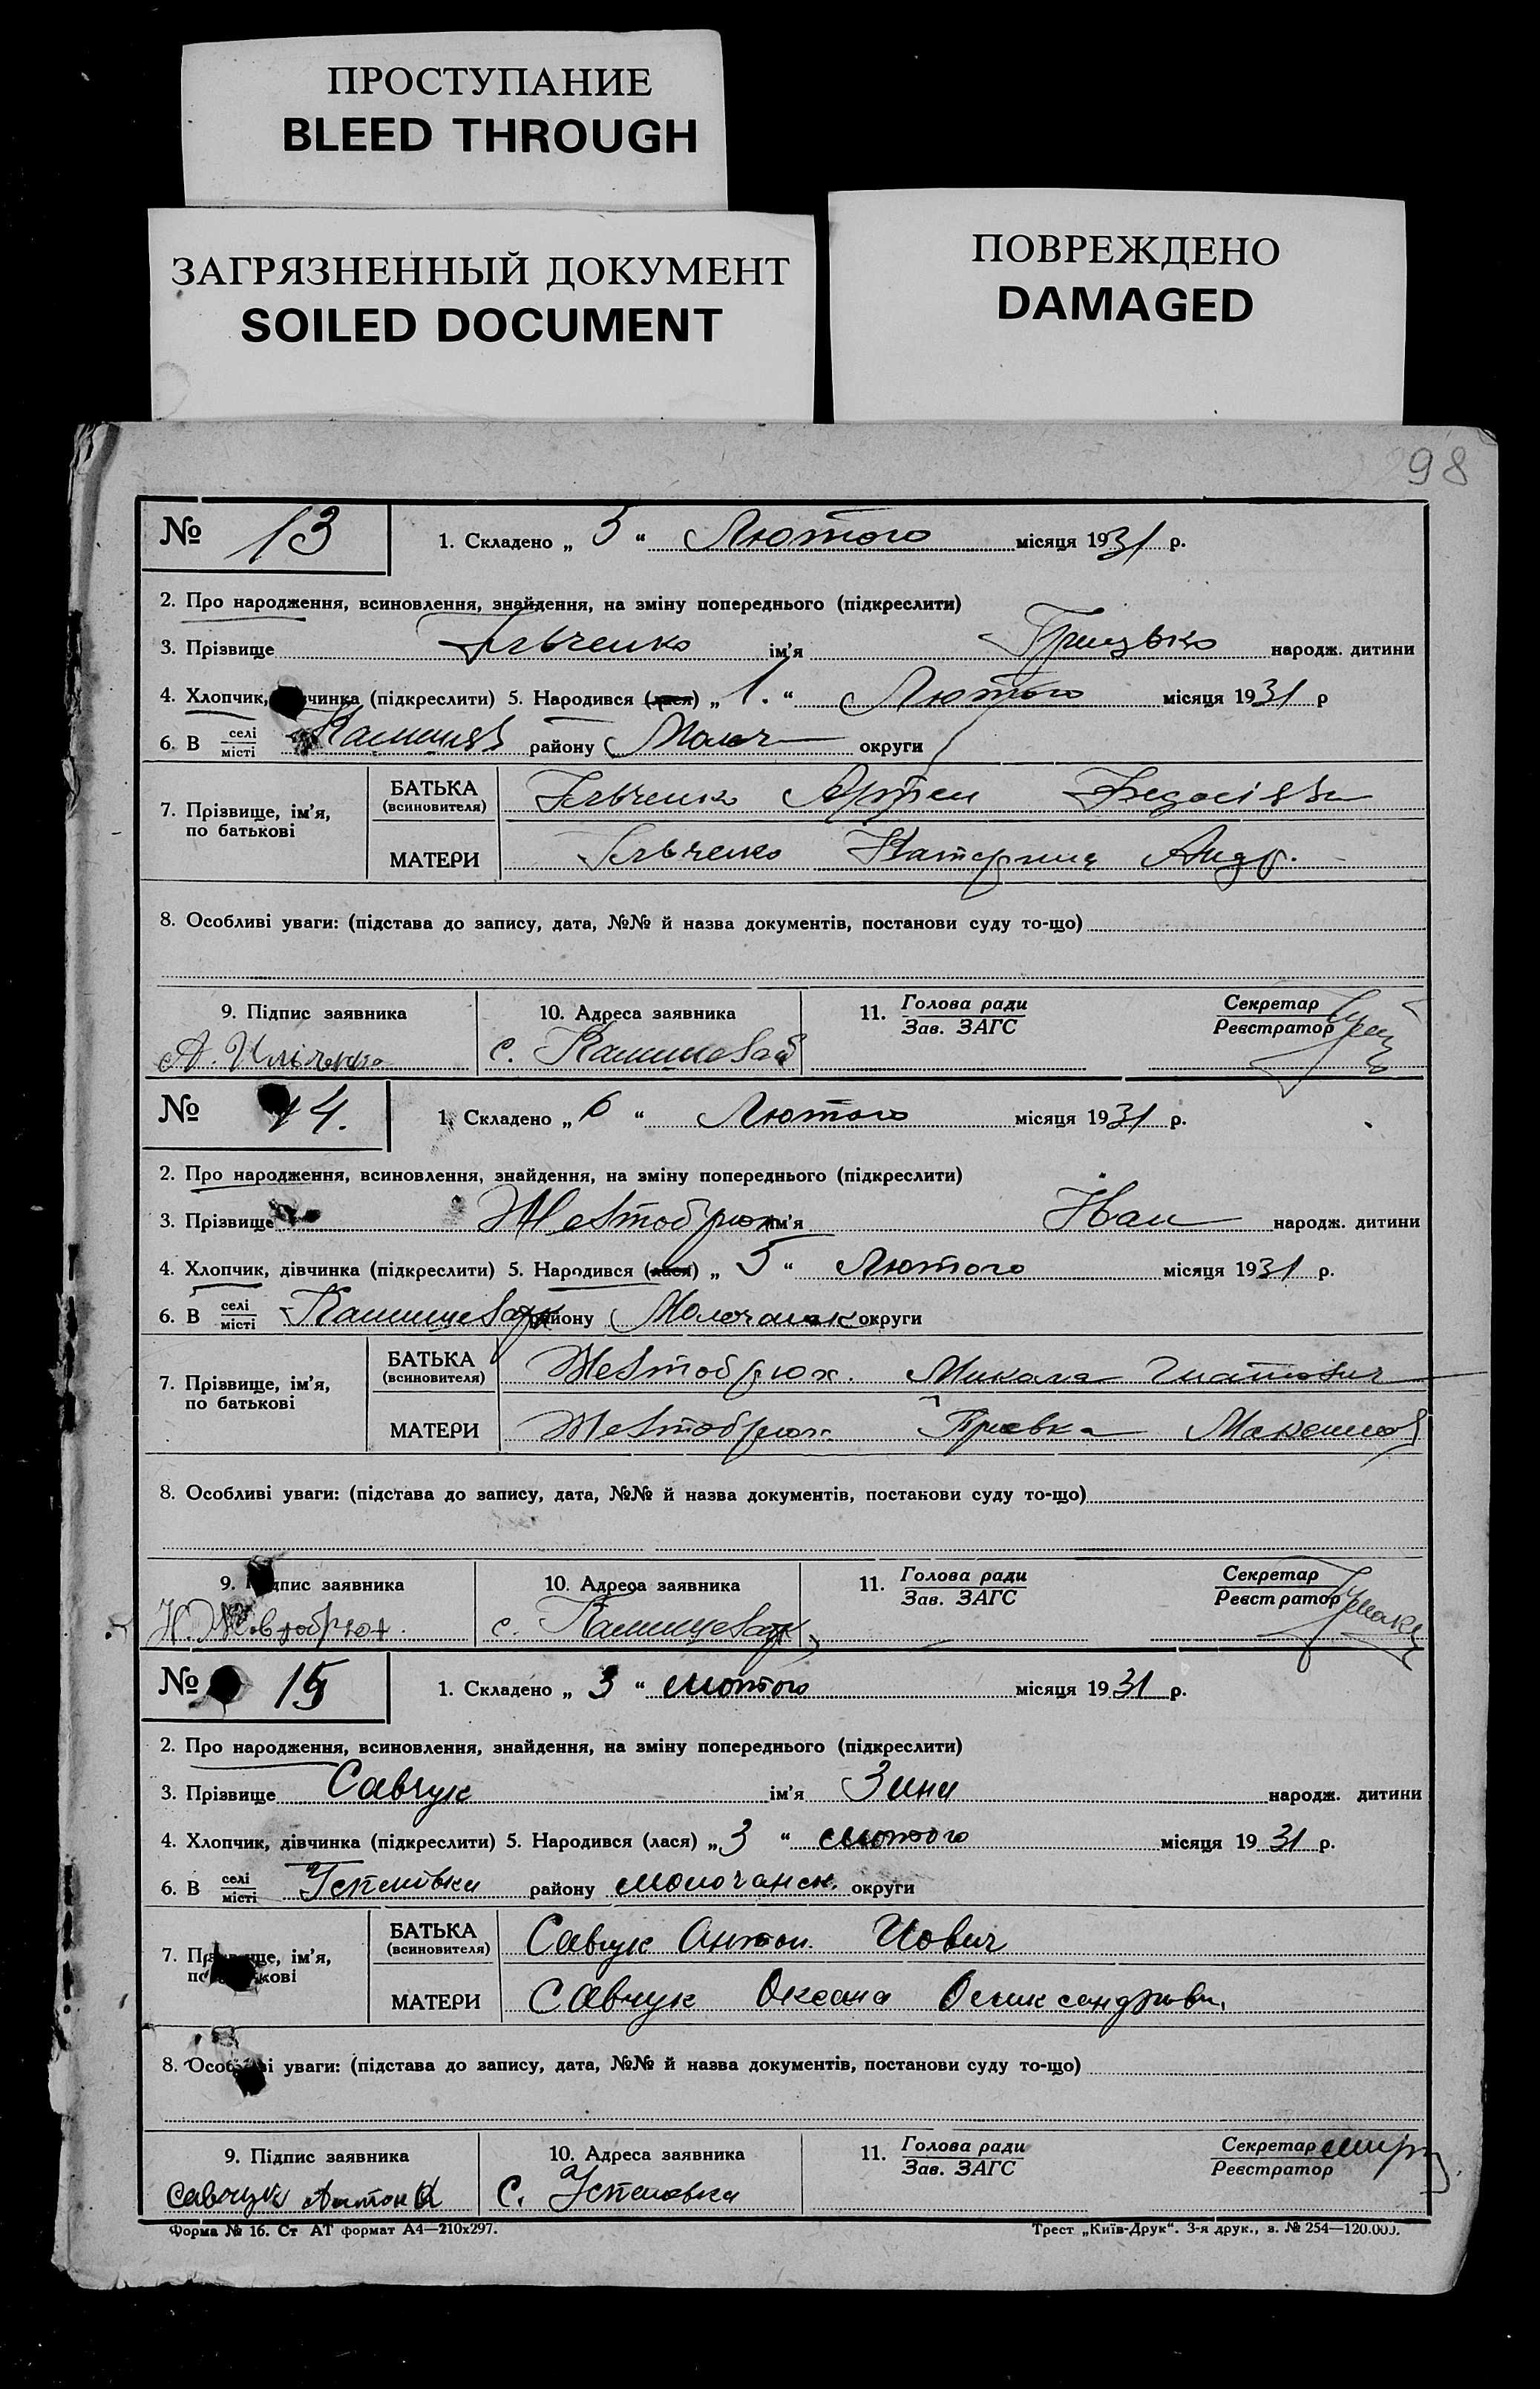 ПРОСТУПАНИЕ
BLEED THROUGH
ЗАГРЯЗНЕННЫЙ ДОКУМЕНТ
SOILED DOCUMENT
ПОВРЕЖДЕНО
DAMAGED
98
№ 13 1. Складено „ 3 “ Лютого місяця 1931 р.
2. Про народження, всиновлення, знайдення, на зміну попереднього (підкреслити)
3. Прізвище ім'я Грицько народж. дитини
4. Хлопчик, чинка (підкреслити) 5. Народився (лася) „ 1. “ Лютого місяця 1931 р
6. В селі місті району Молоч округи
7. Прізвище, ім'я, по батькові
БАТЬКА (всиновителя) Артем
МАТЕРИ Катерина Андр.
8. Особливі уваги: (підстава до запису, дата, №№ й назва документів, постанови суду то-що)
9. Підпис заявника 10. Адреса заявника 11. Голова ради Зав. ЗАГС Секретар Реєстратор
с.
№ 14. 1. Складено „ 6 “ Лютого місяця 1931 р.
2. Про народження, всиновлення, знайдення, на зміну попереднього (підкреслити)
3. Прізвище Жовтобрюх ім'я Іван народж. дитини
4. Хлопчик, дівчинка (підкреслити) 5. Народився (лася) „ 5 “ Лютого місяця 1931 р.
6. В селі місті району Молочанськ округи
7. Прізвище, ім'я, по батькові
БАТЬКА (всиновителя) Жовтобрюх. Микола
МАТЕРИ Жовтобрюх
8. Особливі уваги: (підстава до запису, дата, №№ й назва документів, постанови суду то-що)
9. Підпис заявника 10. Адреса заявника 11. Голова ради Зав. ЗАГС Секретар Реєстратор
с.
№ 15 1. Складено „ 3 “ лютого місяця 1931 р.
2. Про народження, всиновлення, знайдення, на зміну попереднього (підкреслити)
3. Прізвище Савчук ім'я Зина народж. дитини
4. Хлопчик, дівчинка (підкреслити) 5. Народився (лася) „ 3 “ лютого місяця 1931 р.
6. В селі місті Успеновка району молочанск. округи
7. Прізвище, ім'я, по батькові
БАТЬКА (всиновителя) Савчук Антон Иович
МАТЕРИ Савчук Оксана Олександровн.
8. Особливі уваги: (підстава до запису, дата, №№ й назва документів, постанови суду то-що)
9. Підпис заявника 10. Адреса заявника 11. Голова ради Зав. ЗАГС Секретар Реєстратор
Савчук Антон с. Успеновка
Форма № 16. Ст АТ формат А4—210х297. Трест „Київ-Друк“. 3-я друк., з. № 254—120.000.